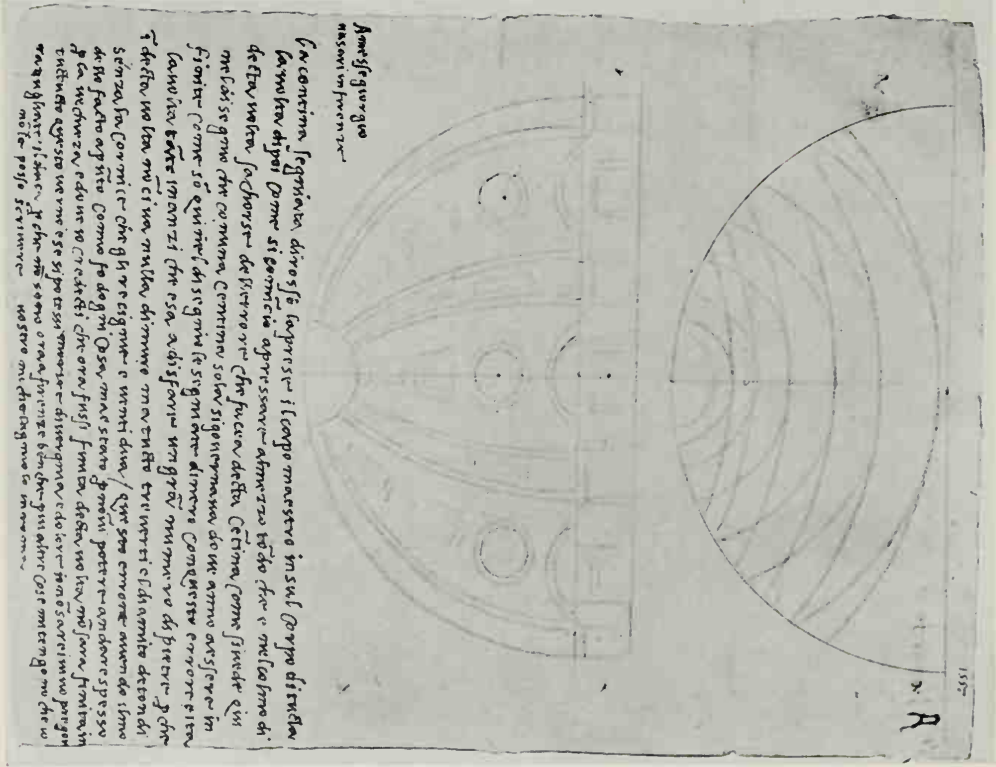 A messer giorgio
vasari in firenze
la centina segniata di rosso la prese il capo maestro in sul corpo di tucta
la volta dipoi come si cominciò apressare al mezzo tōdo che e nel colmo di
decta volta sachorse dellerrore che facea decta cētina come si vede qui
nel disegnio che con una centina sola si governava dove anno a essere in
finite come sō qui nel disegnio le segniate di nero con questo errore e ita
la volta tāto inanzi che sa a disfare un grā numero di pietre p che
ī decta volta nō ci va nulla di muro ma tucto trevertini el diamitro de tondi
senza la cornice che gli recignie e venti dua / questo errore avendo il mo
dello facto apūto como fo dogni cosa m e stato p nō vi potere andare spesso
p la vechieza e dove io credecti che ora fussi finita decta volta nō sara finita in
tucto questo verno e se si potessi morire di vergognia e dolore io nō sarei vivo prego
raguagliate il duca che nō sono ora a firenze benche piu altre cose mi tengono che io
nō le posso scrivere vostro michelagniolo in roma
1557